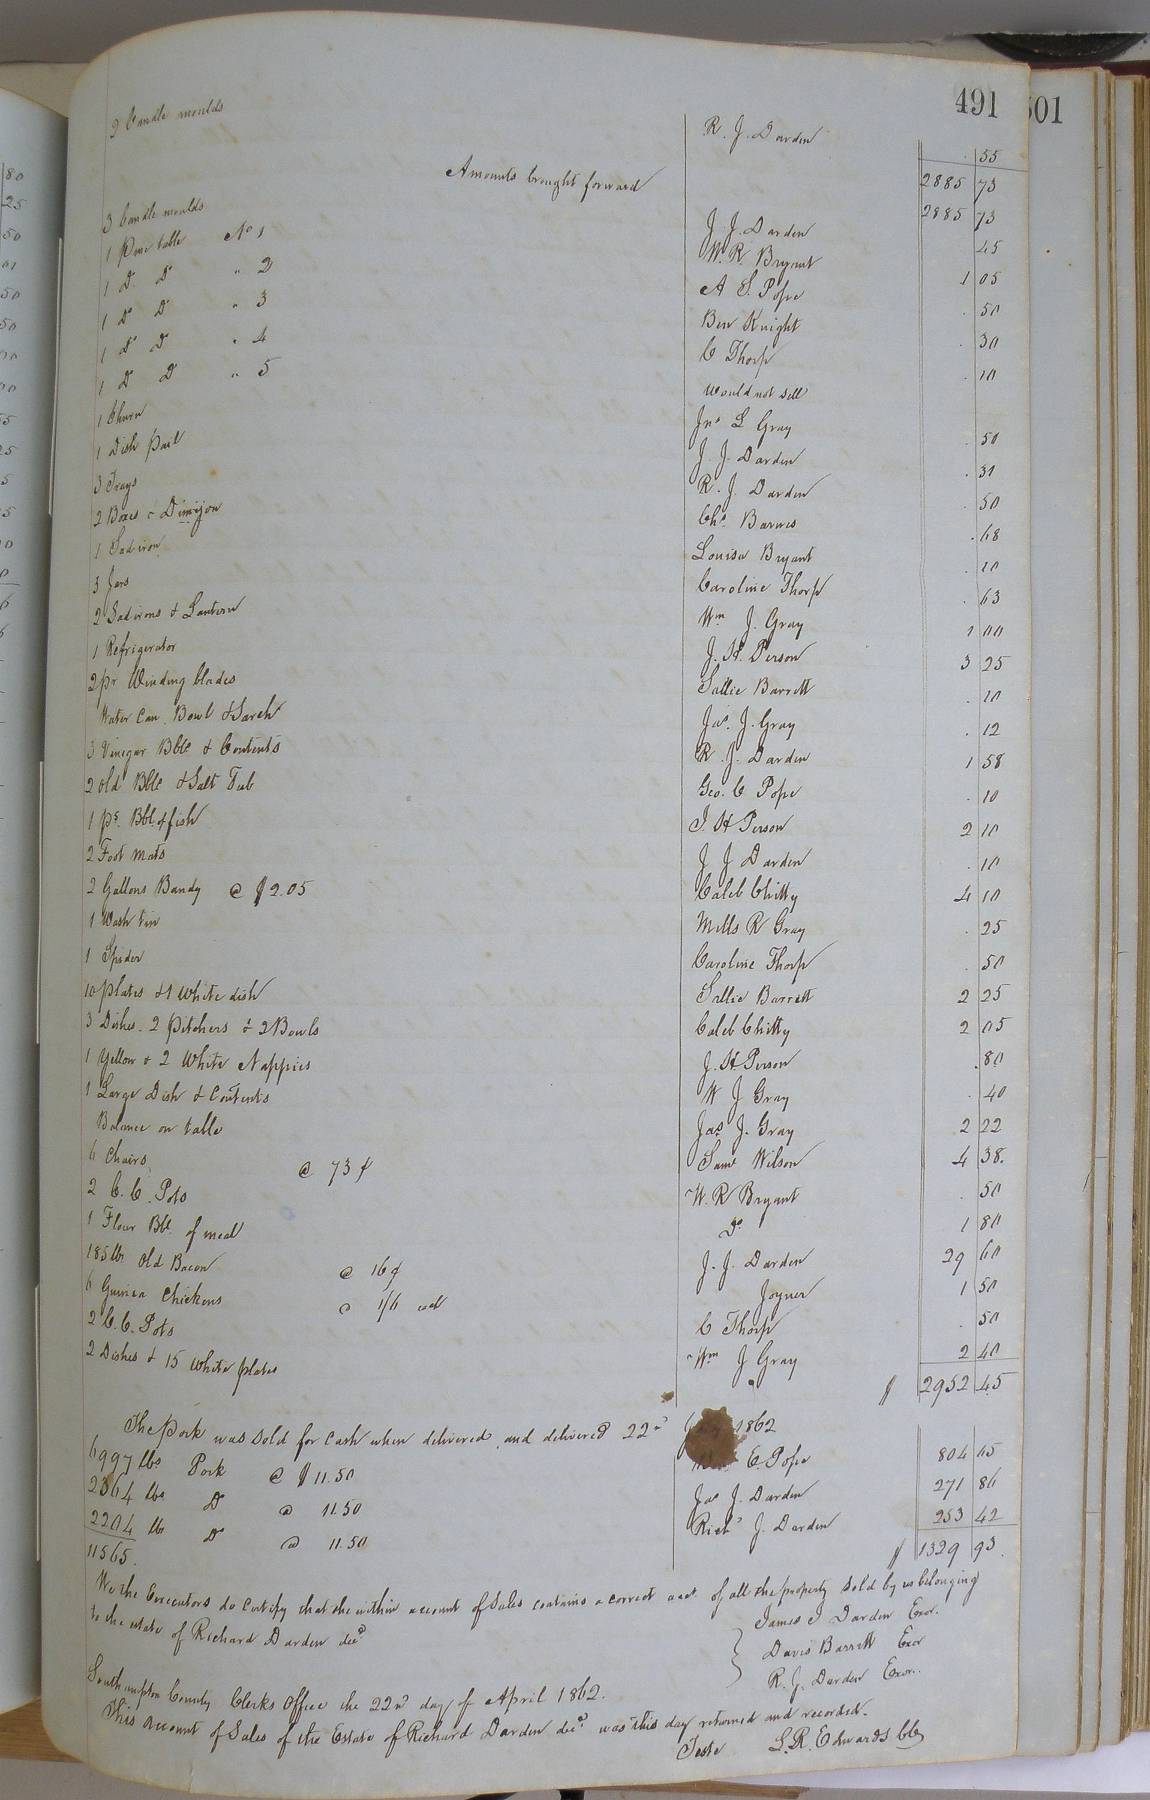 491 501
2 Candle moulds R. J. Darden . 55
2885 73
Amounts brought forward 2885 73
3 Candle moulds J. J. Darden . 45
1 Pine table No 1 W. R Bryant 1 05
1 Do Do " 2 A S. Pope . 50
1 Do Do " 3 Ben Knight . 30
1 Do Do " 4 C Thorp . 10
1 Do Do " 5 Would not sell
1 Churn Jno L Gray . 50
1 Dish Pail J. J. Darden . 30
3 Trays R. J. Darden . 50
2 Boxes & Dimijon Chs. Barnes . 68
1 Sad iron Louisa Bryant . 10
3 Jars Caroline Thorp . 63
2 Sadirons & Lantern Wm J. Gray 1 00
1 Refrigerator J. H. Person 3 25
2 pr Winding blades Sallie Barrett . 10
Water Can, Bowl & Sarch Jas. J. Gray . 12
3 Vinegar Bbls & Contents R. J. Darden 1 58
2 old Bbls & Salt Tub Geo. C Pope . 10
1 ps. Bbl of fish J. H Person 2 10
2 Foot mats J J Darden . 10
2 Gallons Bandy @ $2.05 Caleb Chitty 4 10
1 Wash tin Mills R Gray . 25
1 Spider Caroline Thorp . 50
10 plates & 1 White dish Sallie Barrett 2 25
3 Dishes. 2 Pitchers & 2 Bowls Caleb Chitty 2 05
1 Yellow & 2 White Nappies J. H Person . 80
1 Large Dish & Contents W J Gray . 40
Balance on table Jas J. Gray 2 22
6 Chairs @ 73 ¢ Saml Wilson 4 38.
2 C. C. Pots W. R Bryant . 50
1 Flour Bbl. of meal Do 1 80
185 lbs Old Bacon @ 16 ¢ J. J. Darden 29 60
6 Guinea Chickens @ 1/6 each Joyner 1 50
2 C. C. Pots C Thorp . 50
2 Dishes & 15 White plates Wm J Gray 2 40
$ 2952 45
The pork was sold for Cash when delivered, and delivered 22nd 1862
6997 lbs Pork @ $11.50 E. Pope 804 65
2364 lbs Do @ 11.50 Jas J. Darden 271 86
2204 lb Do @ 11.50 Richd J. Darden 253 42
11565. $ 1329 93.
We the Executors do certify that the within account of Sales contains a correct acct. of all the property sold by us belonging
to the estate of Richard Darden decd
James J Darden Exor.
Davis Barrett Exor
R. J. Darden Exor.
Southampton County Clerks Office the 22nd day of April 1862.
This account of Sales of the Estate of Richard Darden decd. was this day returned and recorded.
Teste L. R. Edwards Clk